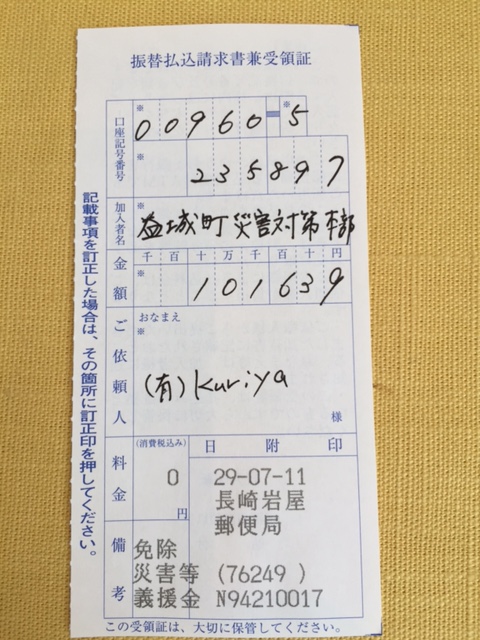 振替払込請求書兼受領証
口座記号番号
※ 00960-※5
※ 235897
加入者名
※ 益城町災害対策本部
金額
千百十万千百十円
※ 101639
ご依頼人
おなまえ
※
(有)Kuriya
様
料金
(消費税込み)
0
円
日附印
29-07-11
長崎岩屋
郵便局
備考
免除
災害等 (76249 )
義援金 N94210017
記載事項を訂正した場合は、その箇所に訂正印を押してください。
この受領証は、大切に保管してください。